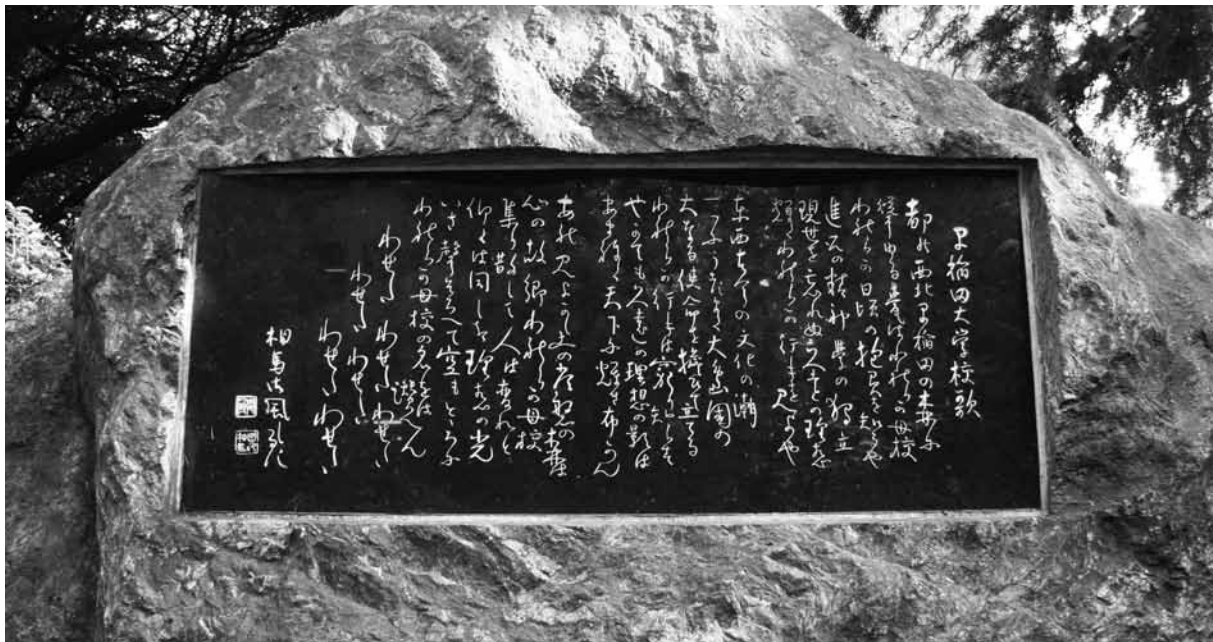 早稲田大学校歌
都の西北早稲田の森に
聳ゆる甍はわれらの母校
われらの日頃の抱負を知るや
進取の精神學の独立
現世を忘れぬ久遠の理想
輝くわれらの行手を見よや
東西古今の文化の潮
一つにうづまく大島国の
大なる使命を擔ひて立てる
われらの行手は窮りしらず
やがても久遠の理想の影は
あまねく天下に輝き布かん
あれ見よかしこの常磐の森は
心の故郷われらの母校
集り散して人は変れど
仰くは同しき理想の光
いざ聲そろへて空もとゝろに
われらの母校の名をは讃へん
わせだ わせだ わせだ
わせだ わせだ
わせだ わせだ
相馬御風